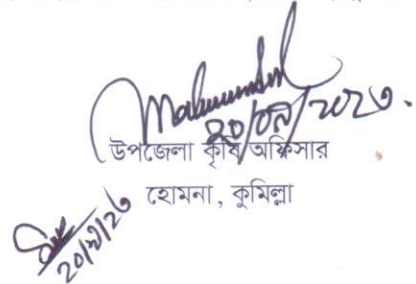 ২০/০৯/২০২৩.
উপজেলা কৃষি অফিসার
হোমনা, কুমিল্লা
২০/৯/২৩